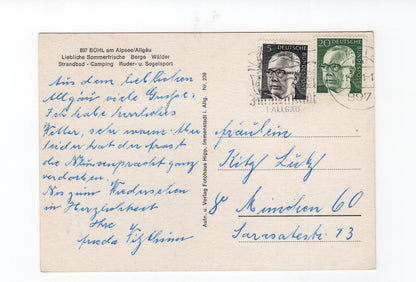 897 BÜHL am Alpsee/Allgäu
Liebliche Sommerfrische Berge Wälder
Strandbad - Camping Ruder- u. Segelsport
Aus dem lieblichen
Allgäu viele Grüße.
Ich habe herrliches
Wetter, sehr warm. Aber
leider hat der Frost
die Blütenpracht ganz
verdorben.
Bis zum Wiedersehen
in Herzlichkeit
Ihre
Aufn. u. Verlag Fotohaus Hipp, Immenstadt i. Allg. Nr. 209
5 DEUTSCHE
20 DEUTSCHE
i. ALLGÄU
897
Fräulein
Kitz Lutz
8 München 60
Sarasatestr. 13